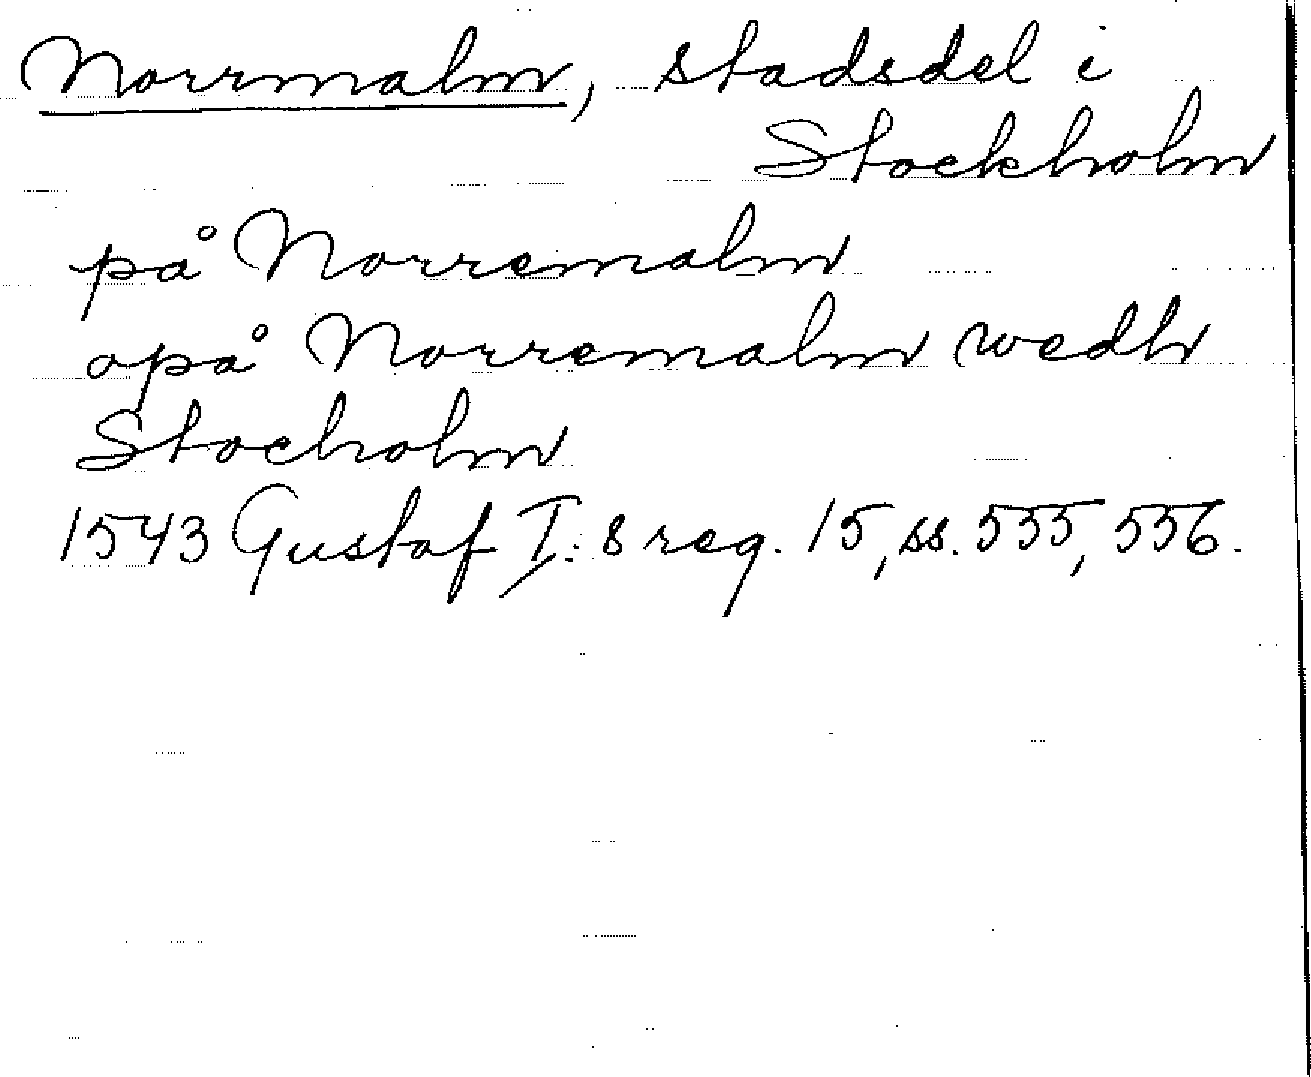 Norrmalm, stadsdel i
Stockholm
på Norremalm
opå Norremalm wedh
Stocholm
1543 Gustaf I:s reg. 15, ss. 535, 536.